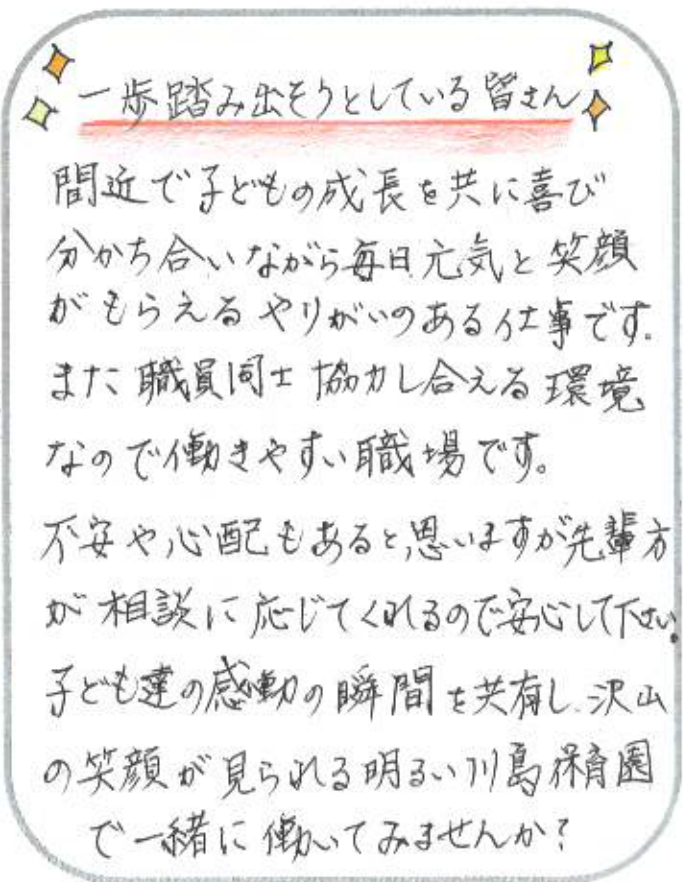 一歩踏み出そうとしている皆さん
間近で子どもの成長を共に喜び
分かち合いながら毎日元気と笑顔
がもらえるやりがいのある仕事です。
また職員同士協力し合える環境
なので働きやすい職場です。
不安や心配もあると思いますが先輩方
が相談に応じてくれるので安心して下さい。
子ども達の感動の瞬間を共有し、沢山
の笑顔が見られる明るい川島保育園
で一緒に働いてみませんか?